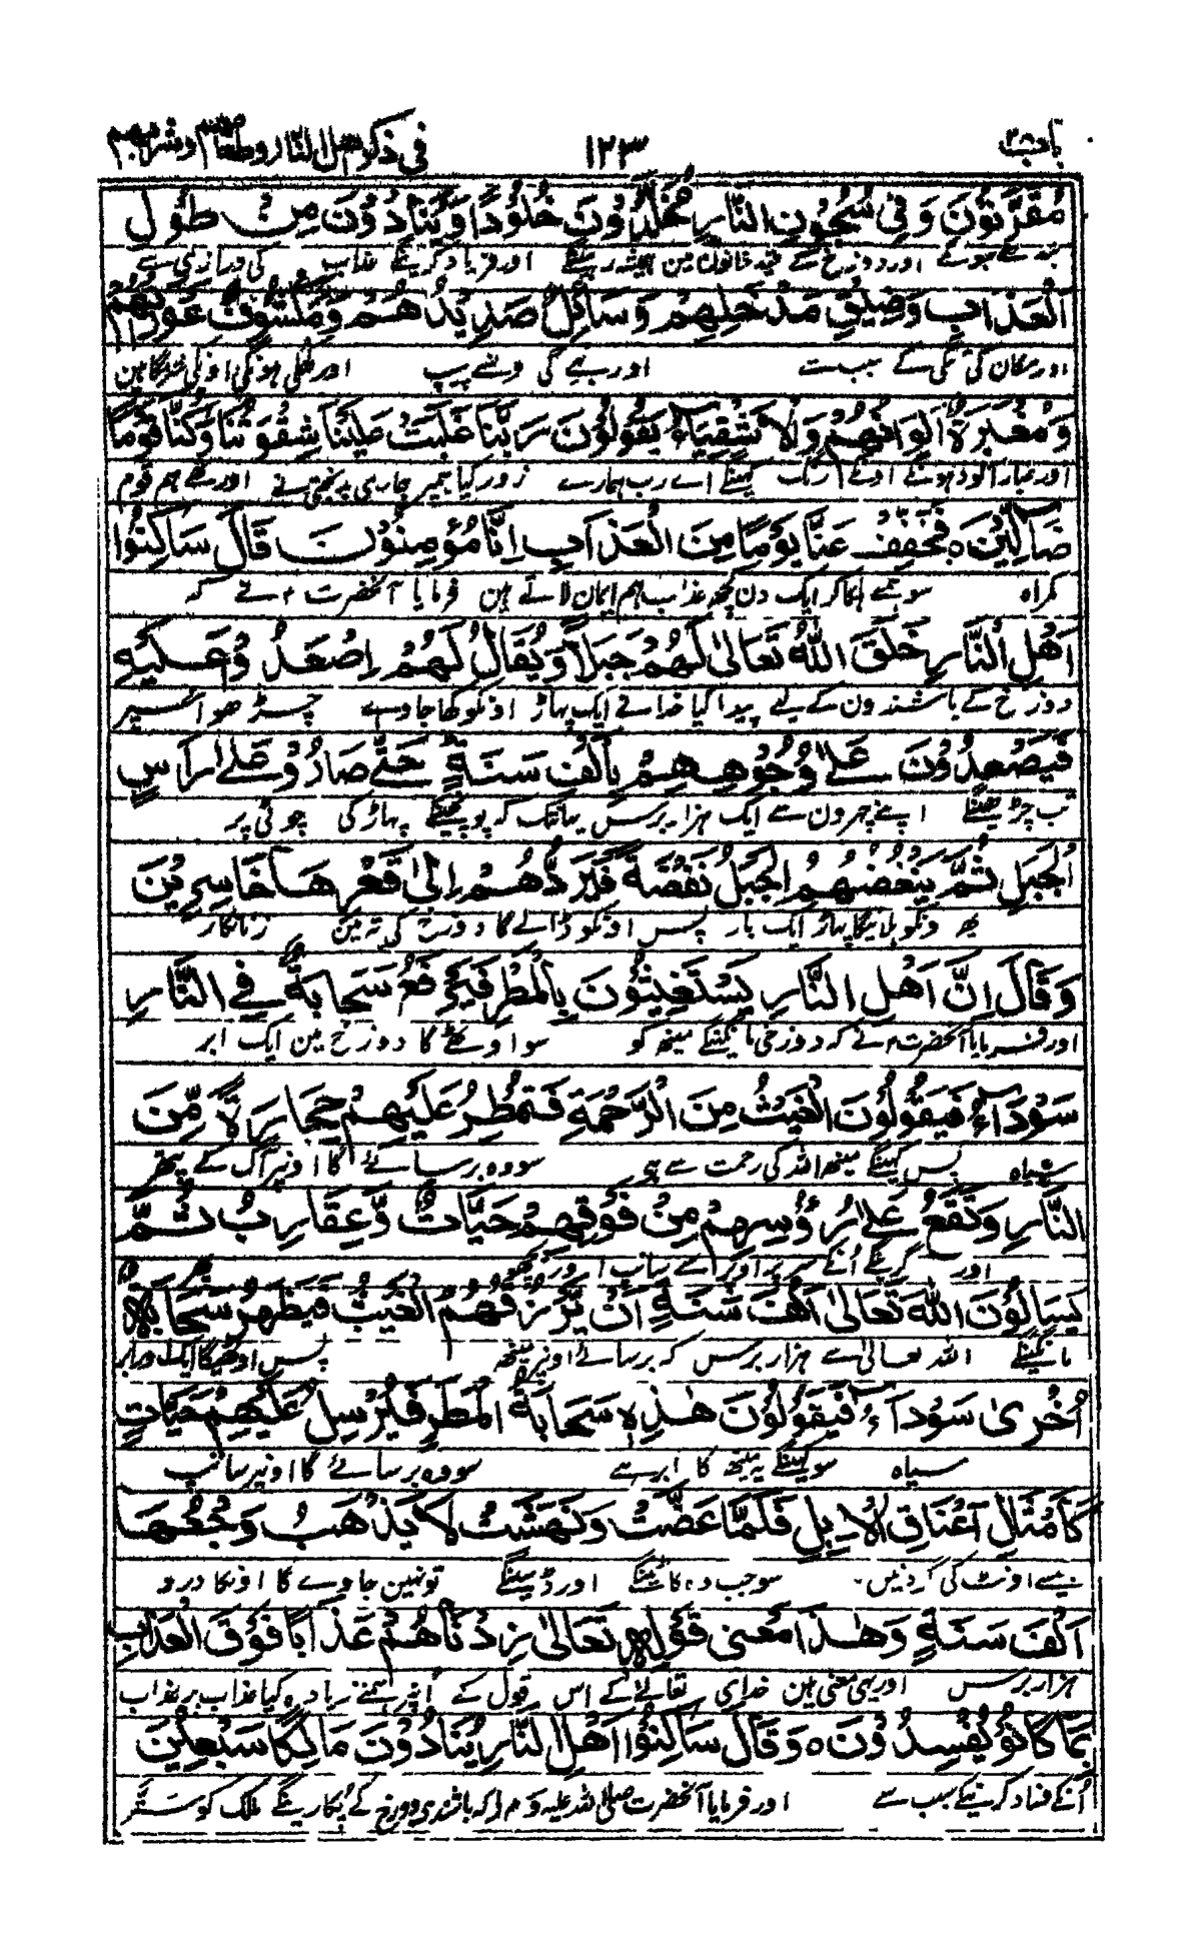 باب ۳۸ ۱۲۳ فی ذکر اهل النار و طعامهم و شرابهم
مُقَرَّنُوْنَ وَفِیْ سُجُوْنِ النَّارِ مُخَلَّدُوْنَ خُلُوْدًا وَّیُنَادُوْنَ مِنْ طُوْلِ
بندھے ہوئے اور دوزخ کے قید خانون مین ہمیشہ رہینگے اور فریاد کرینگے عذاب کی درازی سے
الْعَذَابِ وَضِیْقِ مَدْخَلِهِمْ وَسَائِلٌ صَدِیْدُهُمْ وَمَكْشُوْفٌ عَوْرَتُهُمْ
اور مکان کی تنگی کے سبب اور بہے گی پیپ اور کھلی ہونگی اونکی شرمگاہین
وَمُغْبَرَّةٌ اَلْوَانُهُمْ وَالْاَشْقِیَاءُ یَقُوْلُوْنَ رَبَّنَا غَلَبَتْ عَلَیْنَا شِقْوَتُنَا وَكُنَّا قَوْمًا
اور غبار آلودہ ہونگے اونکے رنگ کہینگے اے رب ہمارے زور کیا ہمپر ہماری بدبختی نے اور تھے ہم قوم
ضَالِّیْنَ ہ فَخَفِّفْ عَنَّا یَوْمًا مِنَ الْعَذَابِ اِنَّا مُؤْمِنُوْنَ قَالَ سَاكِنُوْا
گمراہ سو ہمسے ہلکا کر ایک دن کچھ عذاب ہم ایمان لائے ہین فرمایا آنحضرت ؐ نے کہ
اَهْلِ النَّارِ خَلَقَ اللّٰهُ تَعَالٰی لَهُمْ جَبَلًا وَیُقَالُ لَهُمْ اِصْعَدُوْ عَلَیْهِ
دوزخ کے باشندون کے لیے پیدا کیا خدا نے ایک پہاڑ اونکو کہا جاوے چڑھو اسپر
فَیَصْعَدُوْنَ عَلٰی وُجُوْهِهِمْ بِاَلْفِ سَنَةٍ حَتّٰی صَارُوْ عَلٰی رَاْسِ
تب چڑھینگے اپنے چہرون سے ایک ہزار برس یہانتک کہ پہونچینگے پہاڑ کی چوٹی پر
الْجَبَلِ ثُمَّ یَنْفُضُهُمُ الْجَبَلُ نَفْضَةً فَیَرُدُّهُمْ اِلٰی قَعْرِهَا خَاسِرِیْنَ
پھر اونکو ہلائیگا پہاڑ ایک بار پس اونکو ڈالے گا دوزخ کی تہ مین زیانکار
وَقَالَ اِنَّ اَهْلَ النَّارِ یَسْتَغِیْثُوْنَ بِالْمَطَرِ فَیُرْفَعُ سَحَابَةٌ فِی النَّارِ
اور فرمایا آنحضرت ؐ نے کہ دوزخی مانگینگے مینھ کو سو اوٹھے گا دوزخ مین ایک ابر
سَوْدَآءُ فَیَقُوْلُوْنَ الْغَیْثُ مِنَ الرَّحْمَةِ فَتُمْطِرُ عَلَیْهِمْ حِجَارَةً مِّنَ
سیاہ پس کہینگے مینھ اللہ کی رحمت سے ہے سو وہ برسائے گا اونپر آگ کے پتھر
النَّارِ وَتَقَعُ عَلٰی رُؤُسِهِمْ مِنْ فَوْقِهِمْ حَیَّاتٌ وَّعَقَارِبُ ثُمَّ
اور گرینگے اُنکے سر پر اوپر سے سانپ اور بچھو پھر
یَسْاَلُوْنَ اللّٰهَ تَعَالٰی اَلْفَ سَنَةٍ اَنْ یَّرْزُقَهُمُ الْغَیْثَ فَیَظْهَرُ سَحَابَةٌ
مانگینگے اللہ تعالیٰ سے ہزار برس کہ برسائے اونپر مینھ پس اوٹھیگا ایک اور ابر
اُخْرٰی سَوْدَآءُ فَیَقُوْلُوْنَ هٰذِهٖ سَحَابَةُ الْمَطَرِ فَیُرْسِلُ عَلَیْهِمْ حَیَّاتٍ
سیاہ سو کہینگے یہ مینھ کا ابر ہے سو وہ برسائے گا اونپر سانپ
كَاَمْثَالِ اَعْنَاقِ الْاِبِلِ فَلَمَّا عَضَّتْ وَنَهَشَتْ لَا یَذْهَبُ وَجَعُهَا
جیسے اونٹ کی گردنیں سو جب وہ کاٹینگے اور ڈسینگے تو نہین جاوے گا اونکا درد
اَلْفَ سَنَةٍ وَهٰذَا مَعْنٰی قَوْلِهٖ تَعَالٰی زِدْنَاهُمْ عَذَابًا فَوْقَ الْعَذَابِ
ہزار برس اور یہی معنی ہین خدای تعالیٰ کے اس قول کے اُنپر ہمنے زیادہ کیا عذاب پر عذاب
بِمَا كَانُوْ یُفْسِدُوْنَ ہ وَقَالَ سَاكِنُوْا اَهْلِ النَّارِ یُنَادُوْنَ مَالِكًا سَبْعِیْنَ
اُنکے فساد کرنیکے سبب سے اور فرمایا آنحضرت صلی اللہ علیہ وسلم کہ باشندی دوزخ کے پکارینگے مالک کو ستر